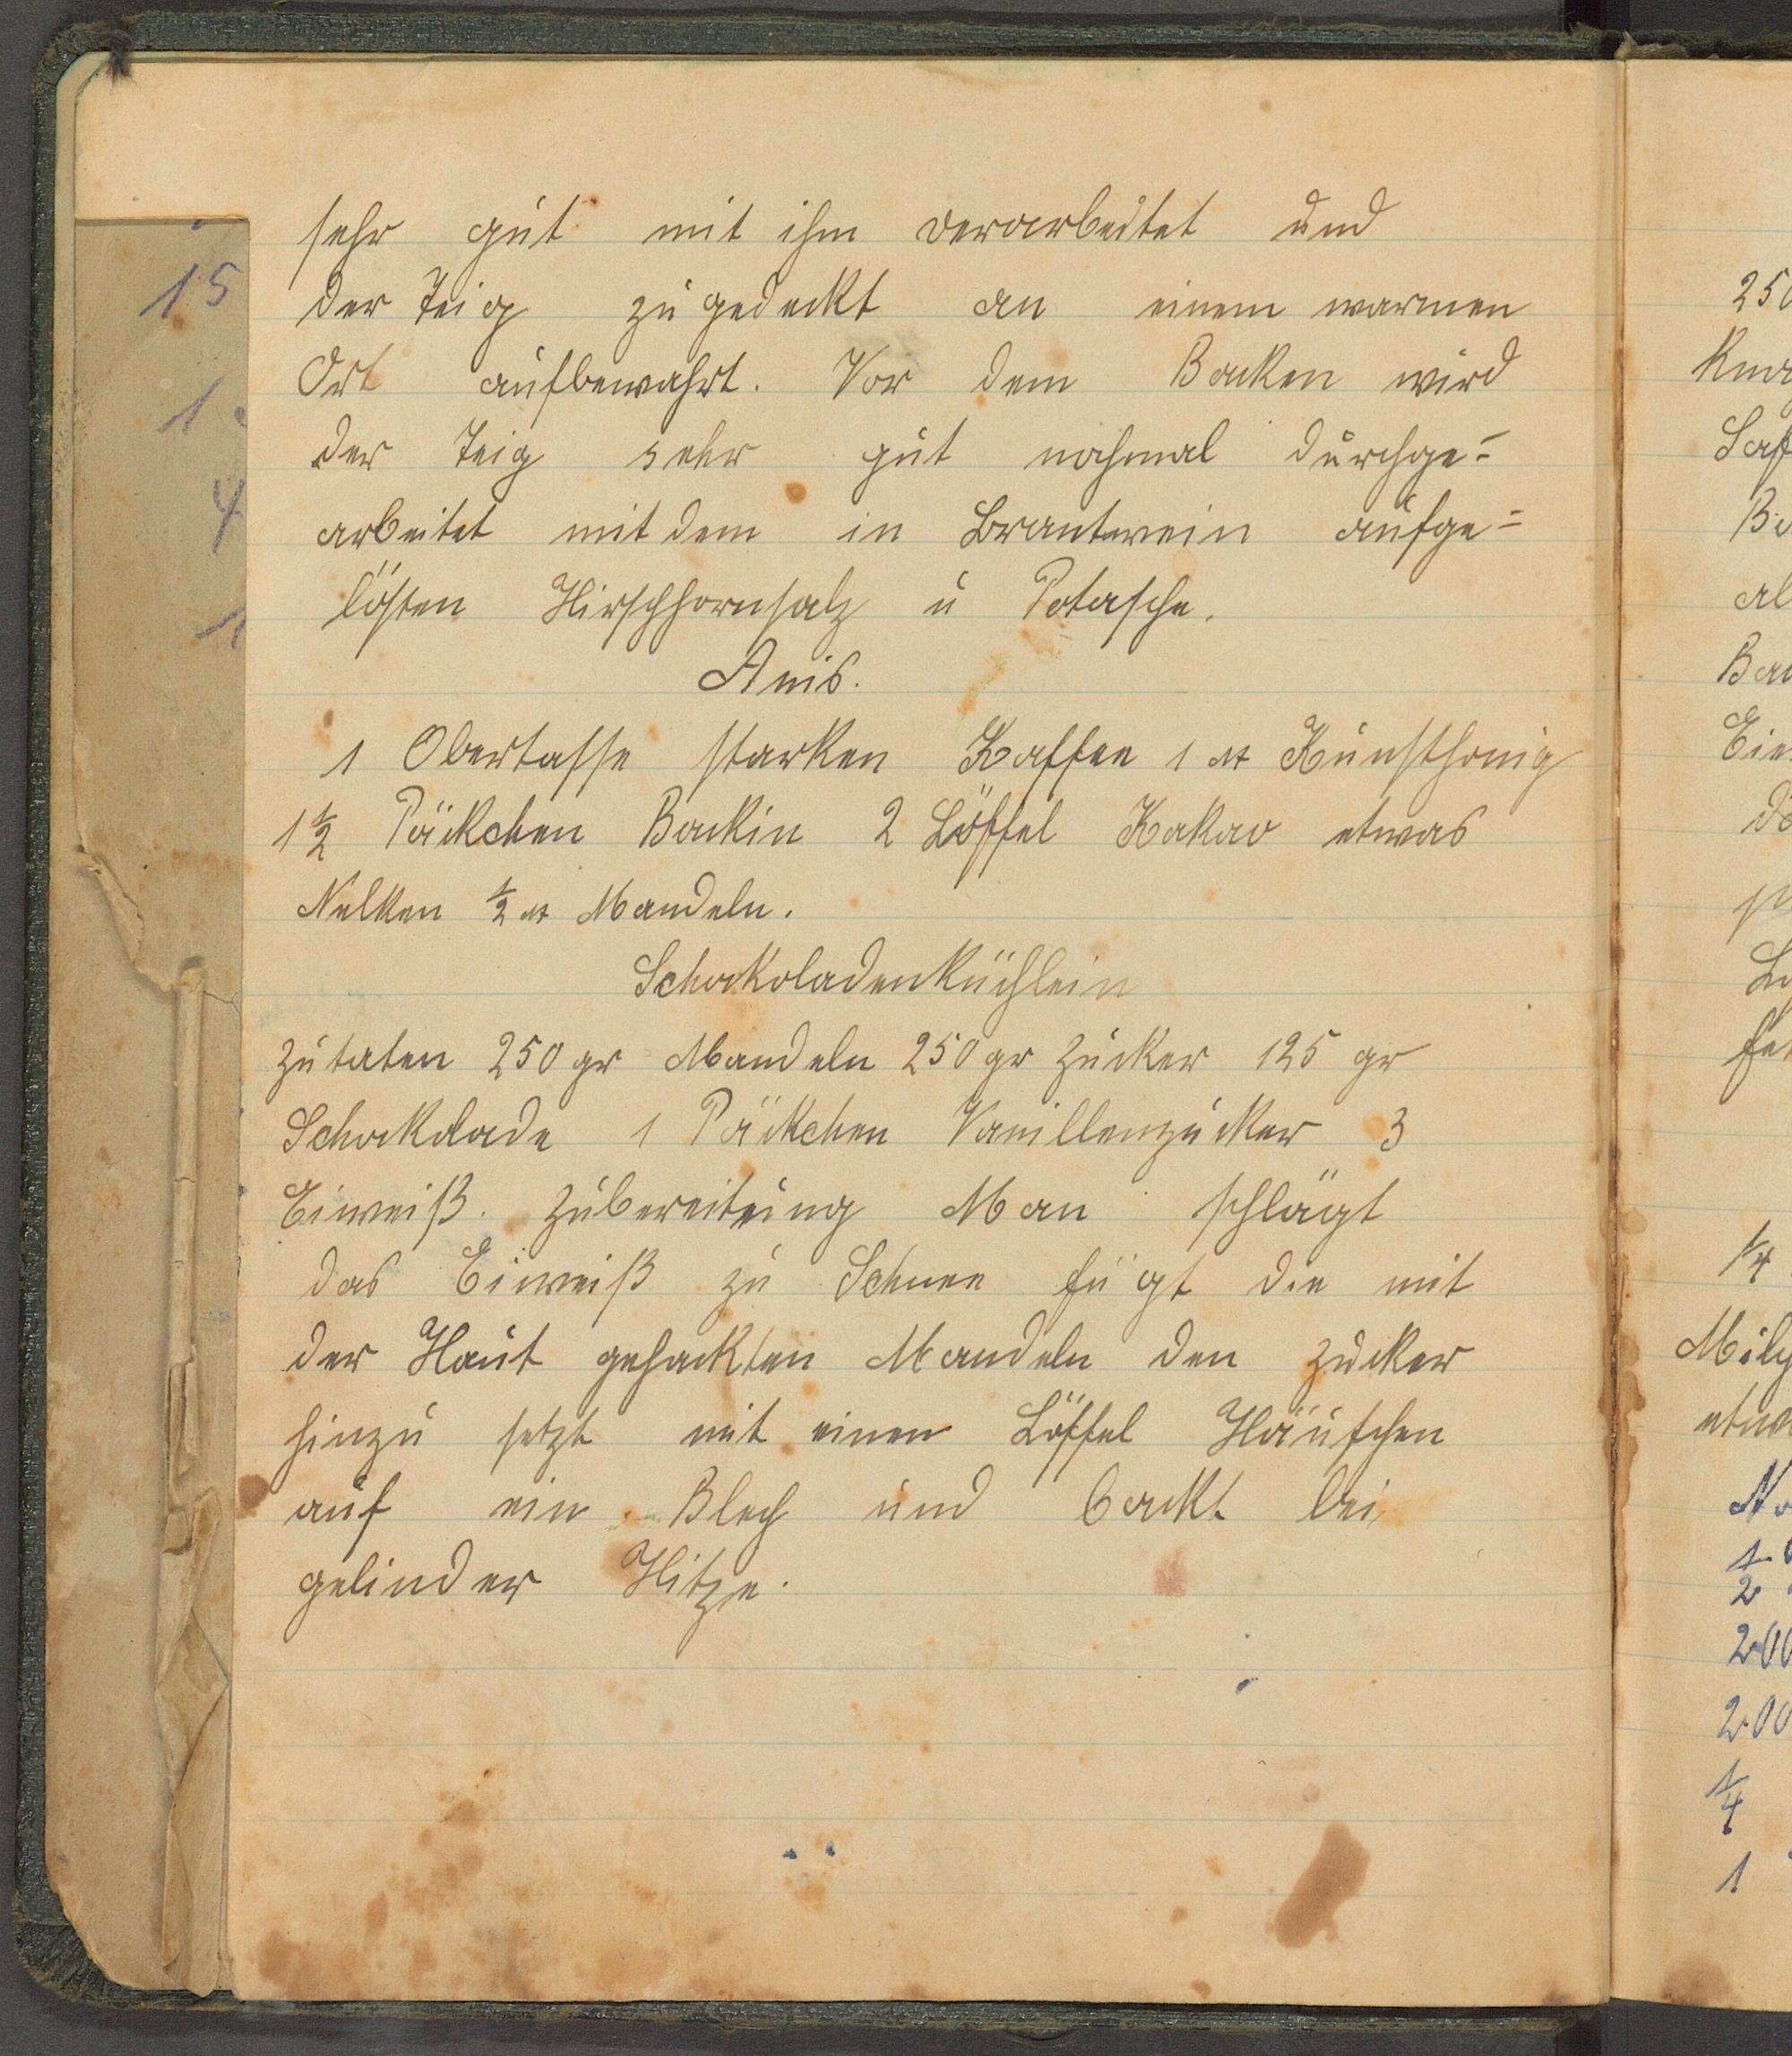 sehr gut mit ihm verarbeitet und
der Teig zugedeckt an einem warmen
Ort aufbewahrt. Vor dem Backen wird
der Teig sehr gut nochmal durchge=
arbeitet mit dem in Brantwein aufge=
lösten Hirschhornsalz u Potasche.
Anis.
1 Obertasse starken Kaffee 1 ℔ Kunsthonig
1 1/2 Päckchen Backin 2 Löffel Kakao etwas
Nelken 1/2 ℔ Mandeln.
Schokoladenküchlein
Zutaten 250 gr Mandeln 250 gr Zucker 125 gr
Schokolade 1 Päckchen Vanillenzucker 3
Eiweiß. Zubereitung Man schlägt
das Eiweiß zu Schnee fügt die mit
der Haut gehackten Mandeln den Zucker
hinzu setzt mit einen Löffel Häufchen
auf ein Blech und backt bei
gelinder Hitze.
15
1
4
1
250
Saf
al
1/4
1/2
200
200
1/4
1